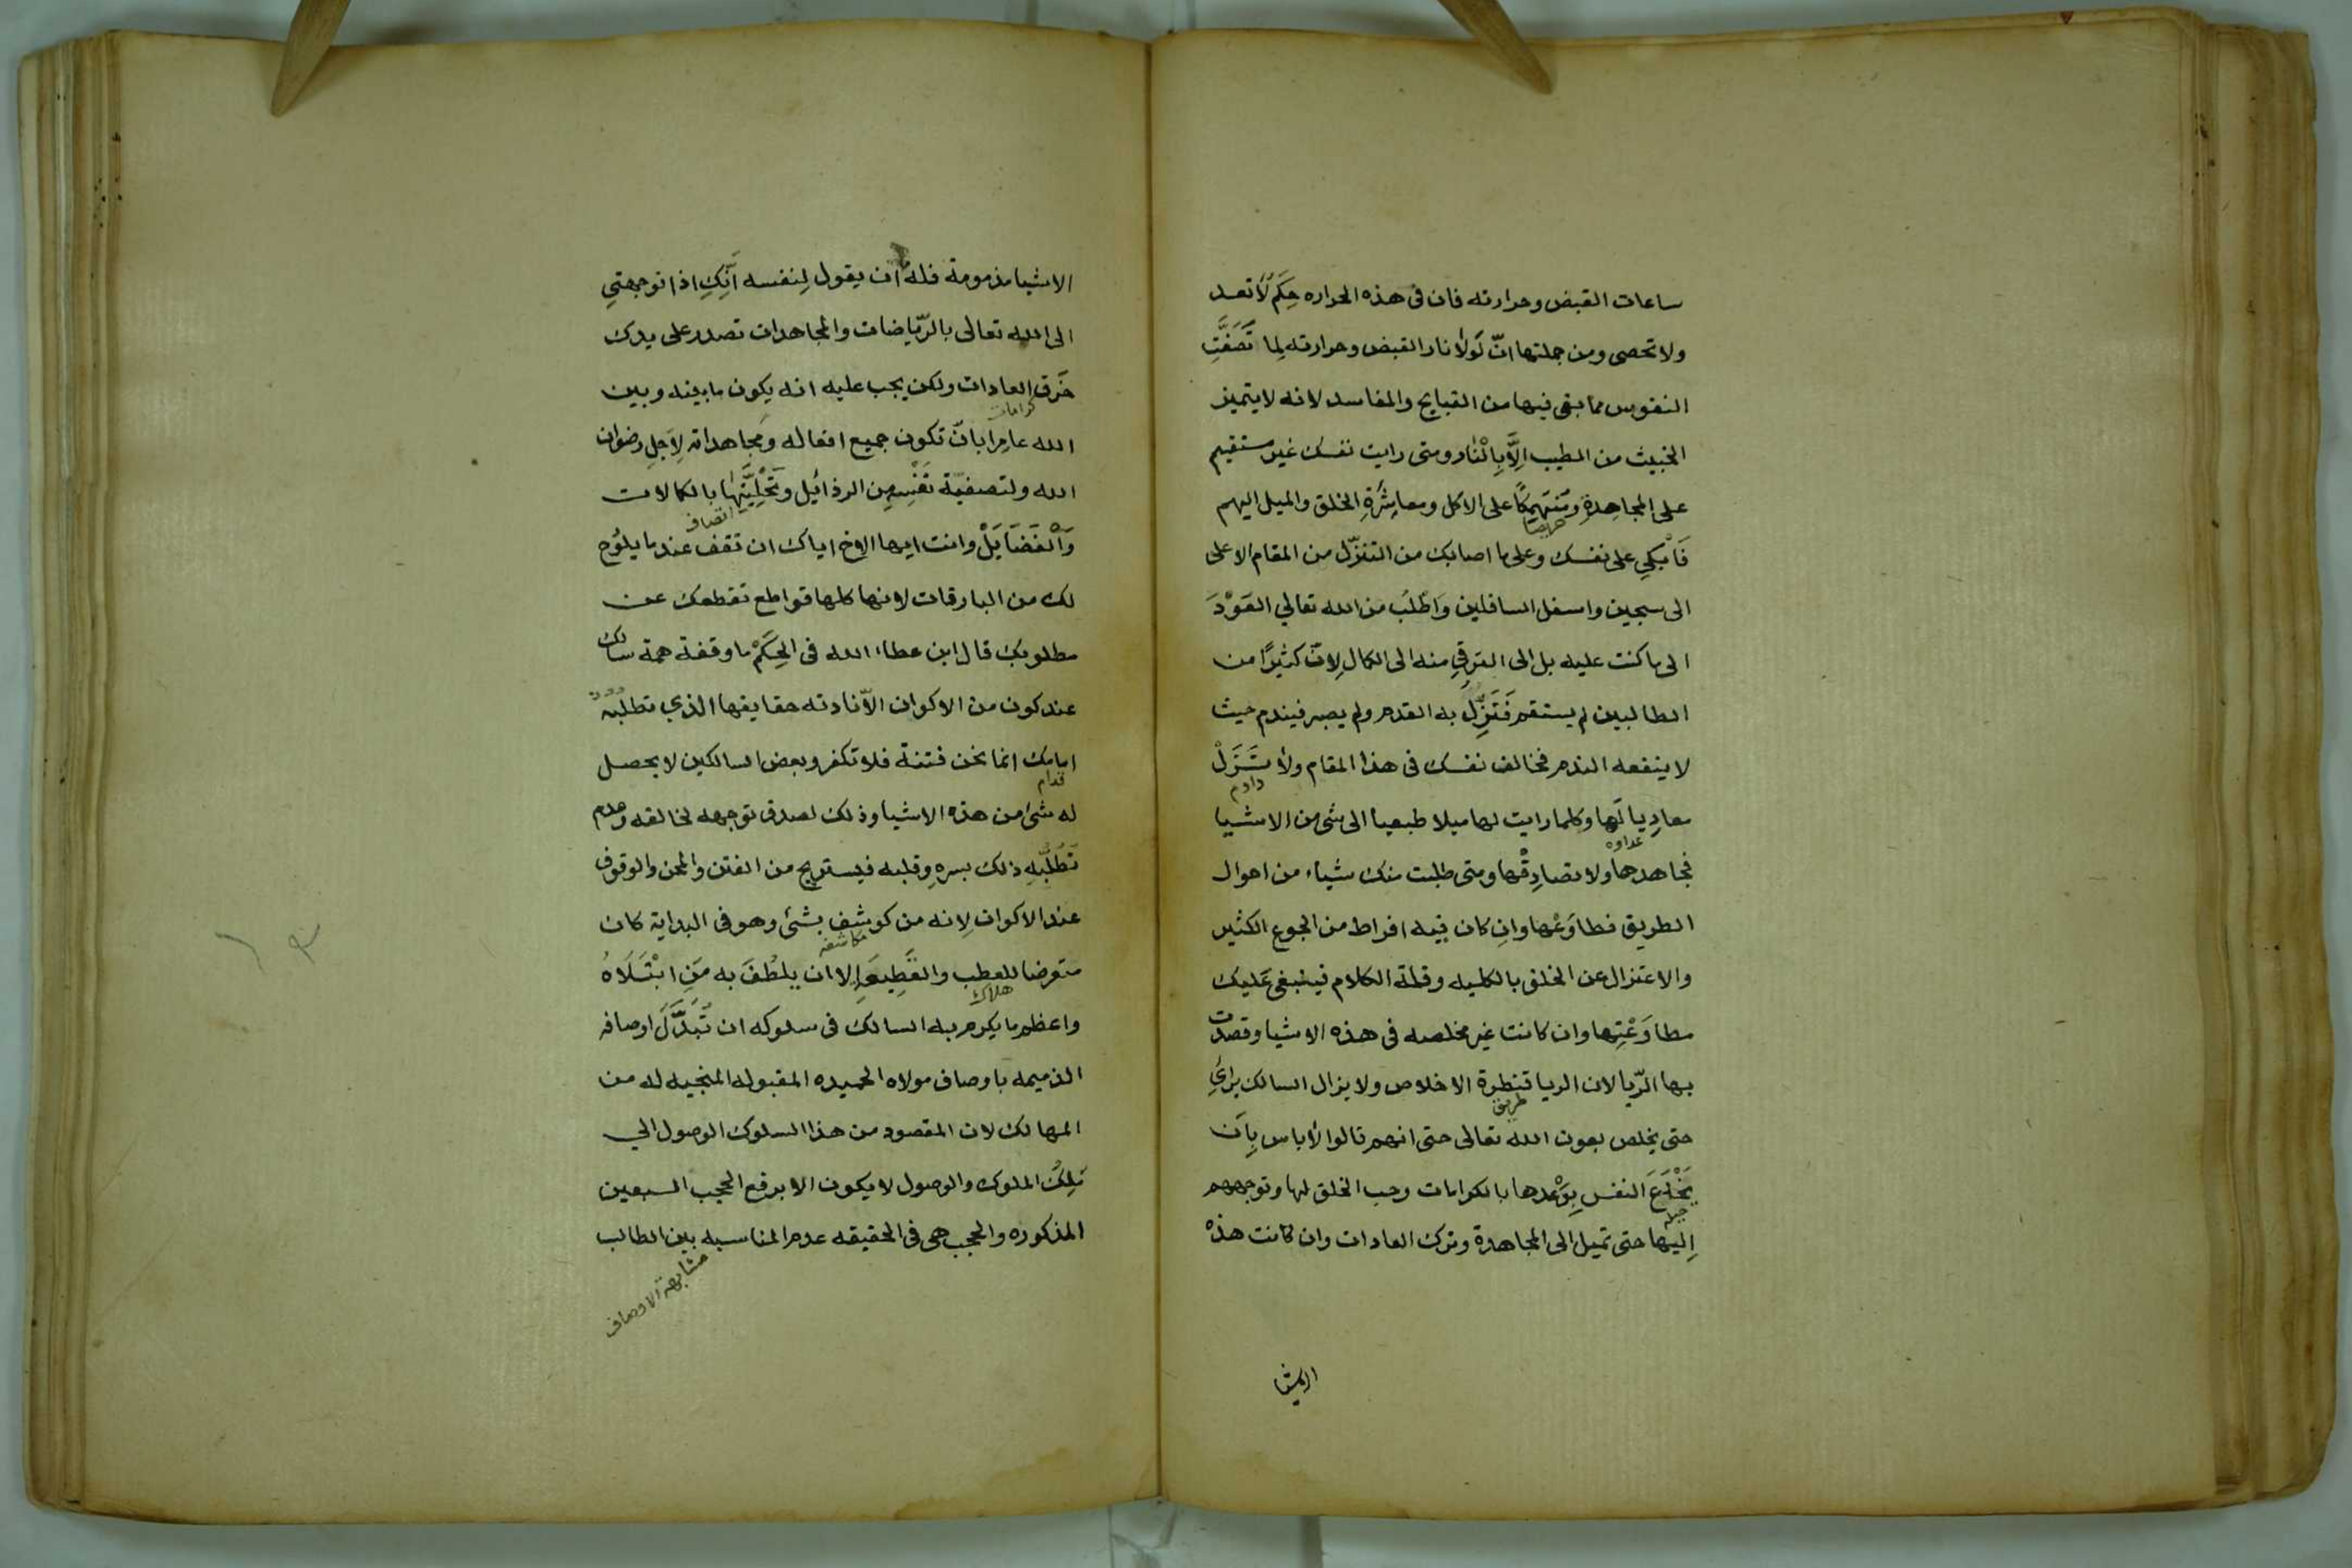 ساعات القبض وحرارته فان في هذه الحراره حِكَم لا تعد
ولا تحصى ومن جملتها انّ لَولا نار القبض وحرارته لِما تَصَفَّتِ
النفوس مما بقى فيها من القبايح والمفاسد لانه لا يتميز
الخبيث من الطيب اِلَّا بِالْنار ومتى رايت نفسك غير مستقيم
على المجاهِدةِ ومُنْتَهِمِكًا على الاكل ومعاشَرَةِ الخلق والميل اليهم
حريصا
فَاْبكِي على نفسك وعلى ما اصابك من التنزّل من المقام الاعلى
الى سجين واسفل السافلين وَاطْلُب من الله تعالي العَوْدَ
الى ما كنت عليه بل الى الترقِي منه الى الكمال لِانّ كثيرًا من
الطالبين لم يستقم فَتَزِلّ به القدم ولم يصبر فيندم حيث
لا ينفعه الندم فخالف نفسك في هذا المقام ولا تَزَلْ
داوم
معادِيا لَها وكلما رايت لها ميلا طبعيا الى شى من الاشيا
عداوه
فجاهدها ولا تصادِقْها ومتى طلبت منك شياء من احوال
الطريق فطاوَعْها وانِ كان فيه افراط من الجوع الكثير
والاعتزال عن الخلق بالكليه وقلة الكلام فينبغى عَليك
مطاوَعْتِها وان كانت غير مخلصه في هذه الاشيا وقصدت
بها الرّيا لان الريا قنطرة الاخلاص ولا يزال السالك يرائِ
طريق
حتى يخلص بعون الله تعالى حتى انهم قالوا لا باس بِاَن
يَخْدَعَ النفس بِوَعْدها بالكرامات وحب الخلق لها وتوجههم
حيله
اِليها حتى تميل الى المجاهدة وترك العادات وان كانت هذه
الاشيا
الاشيا مذمومة فله ان يقول لِنفسه اَنِّكِ اذا توجهتِي
الى الله تعالى بالرّياضات والمجاهدات تصدر على يدك
خَرق العادات ولكن يجب عليه انه يكون ما بينه وبين
كرامات
الله عامِرًا بانّ تكون جميع افعاله ومجاهداته لِاَجلِ رضوان
الله ولتصفيّة نَفْسِهِ مِن الرذائِل وتَحْلِيَّتِها بالكمالات
اتصاف
وَاْلفَضَايَلْ وانت ايها الاِخ اياك ان تقف عند ما يلوُح
لك من البارقات لانها كلها قواطع تقطعك عن
مطلوبك قال ابن عطاء الله في الحِكَمْ ما وقفة همة سالك
عند كون من الاكوان الاّ نادته حقايقها الذي تطلبُهُ
امامك انما نحن فتنة فلا تكفر وبعض السالكين لا يحصل
قدام
له شئ من هذه الاشيا وذلك لصدق توجهه لخالقه وعدم
تَطَلّبه ذلك بسرهِ وقلبه فيستريح من الفتن والمحن والوقوف
عند الاكوان لِانه من كوشف بشئ وهو في البداية كان
مكاشفه
متعرضا للعطب والقَطِيعَةِ اِلا ان يلطُفَ به مَنِ ابْتَلَاهُ
هلاك
واعظم ما يكرم به السالك في سلوكه ان تُبَدَّلَ اوصافه
الذميمه باوصاف مولاه الحميده المقبوله المنجيه له من
المهالك لان المقصود من هذا السلوك الوصول الي
مَلِكُ الملوك والوصول لا يكون الا برفع الحجب السبعين
المذكوره والحجب هى في الحقيقه عدم المناسبه بين الطالب
مشابهة الاوصاف